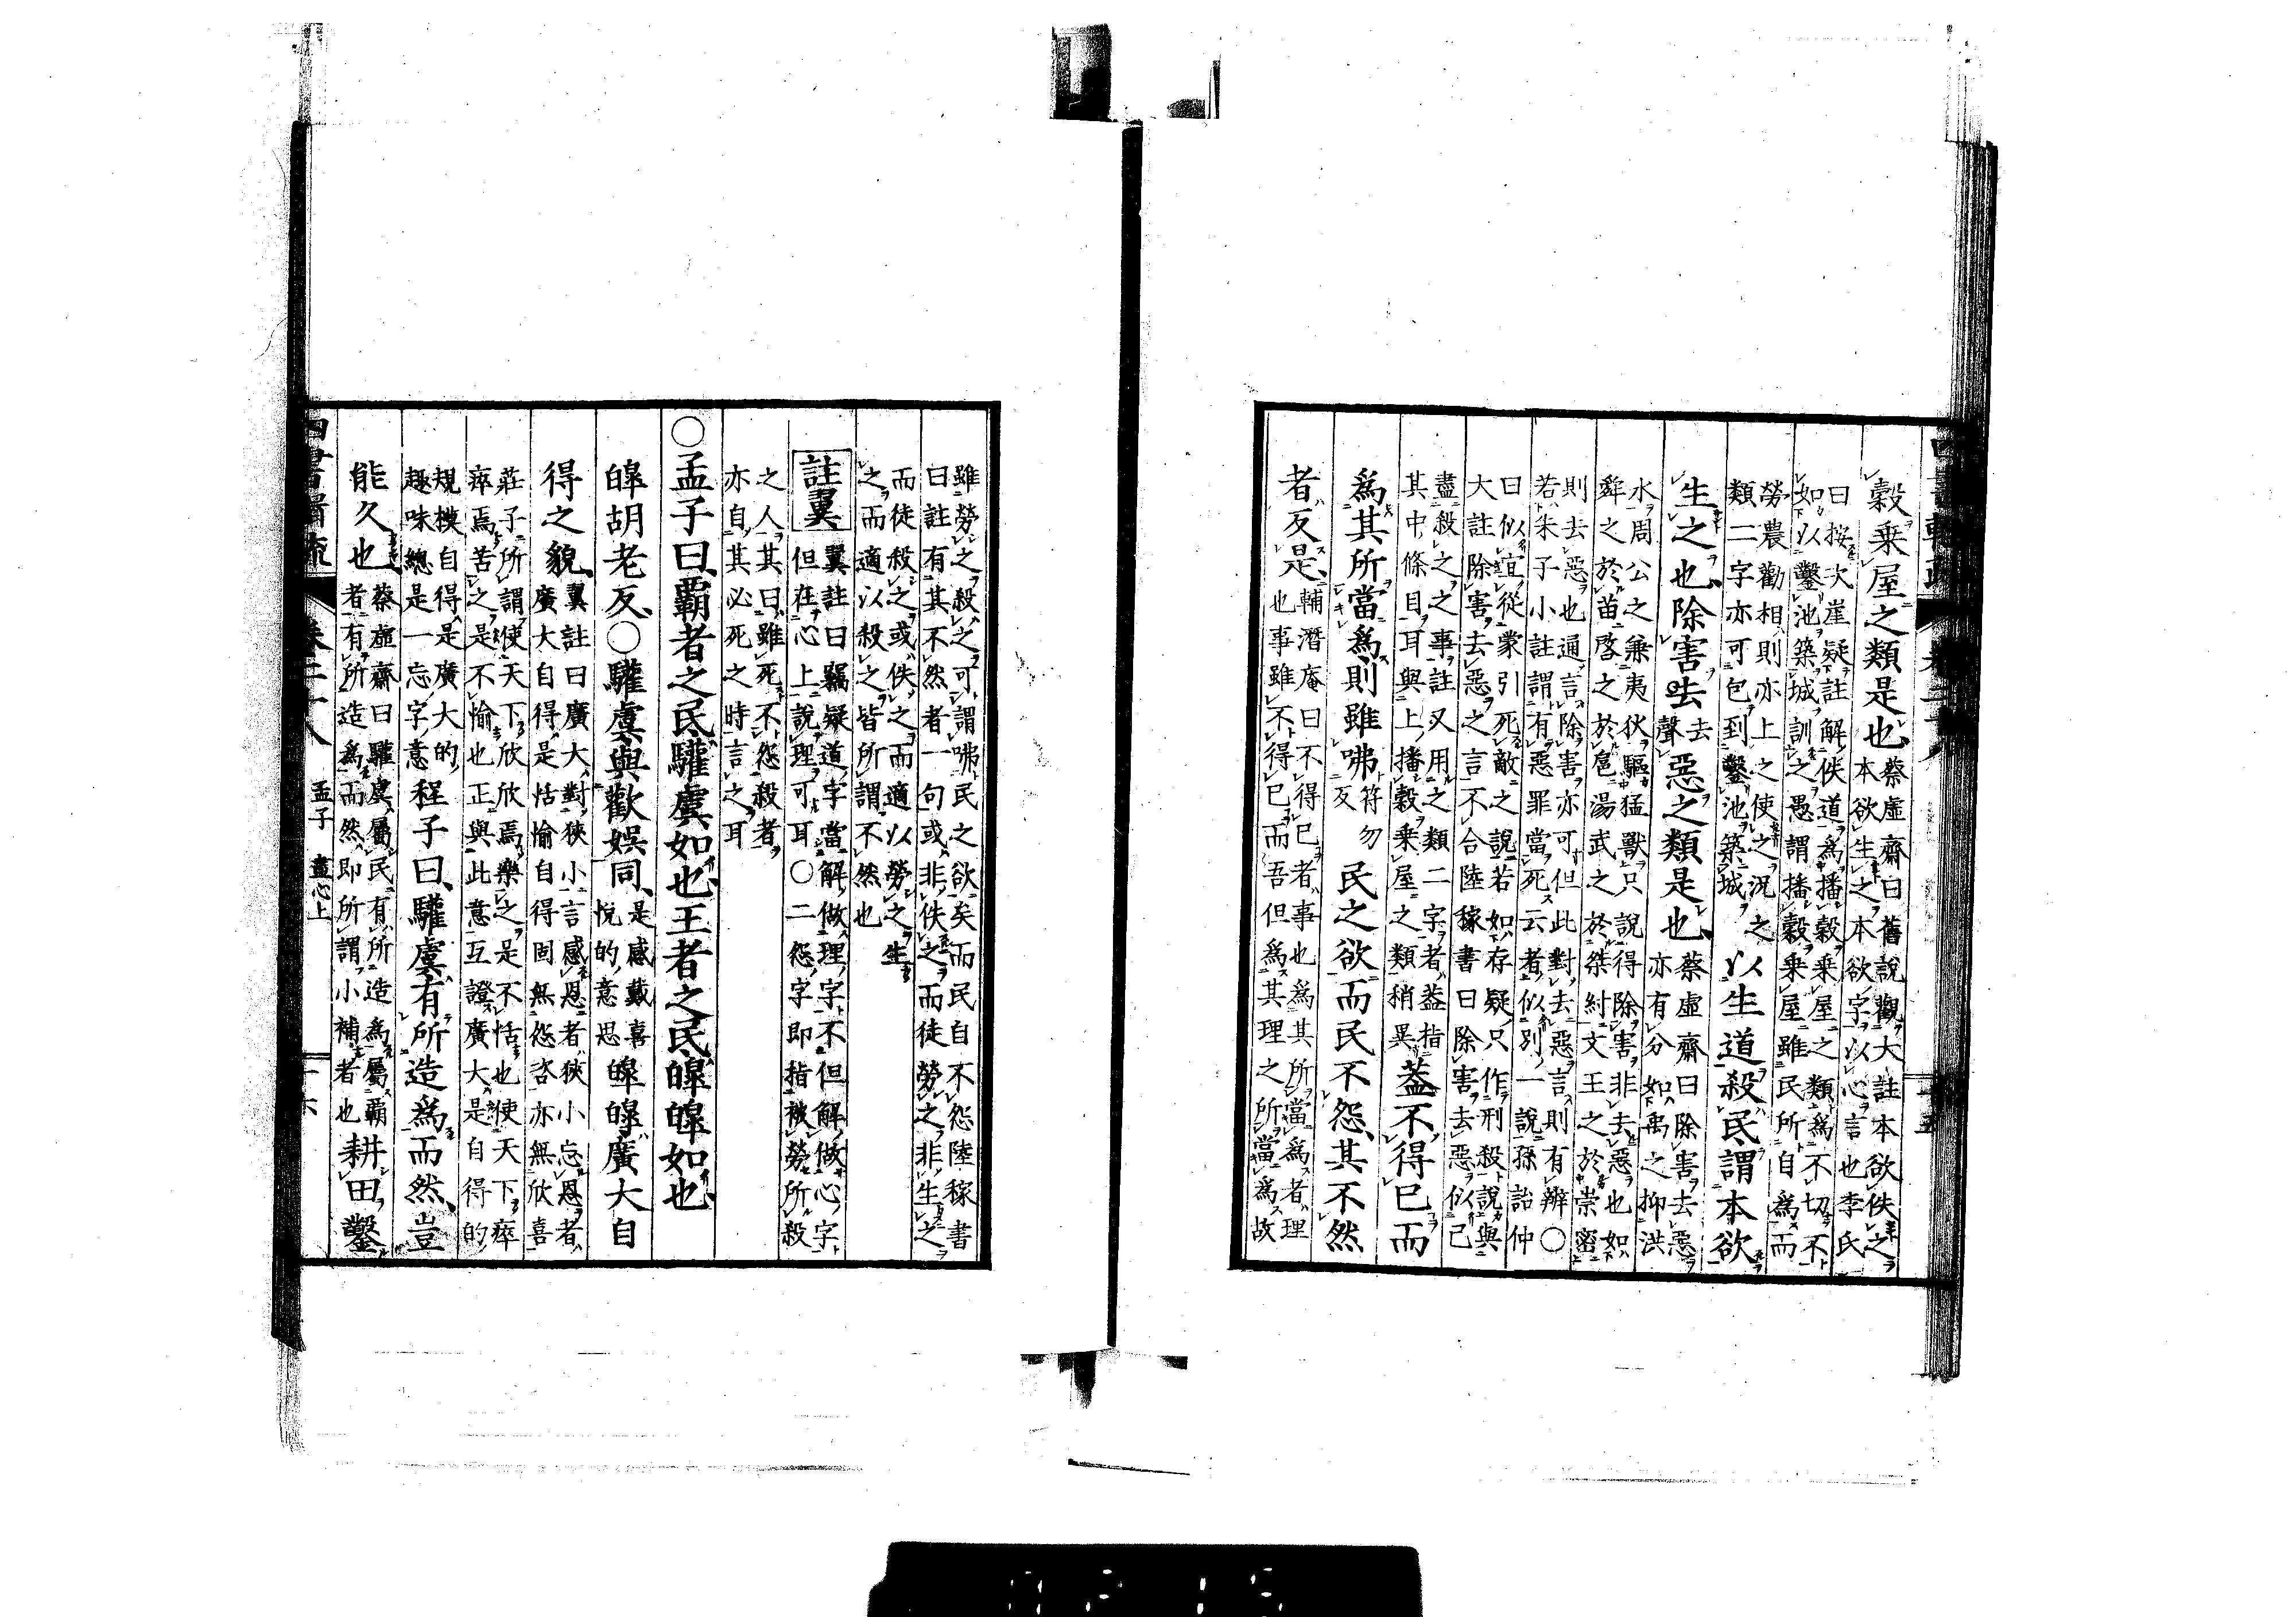 穀乘屋之類是也蔡虛齋曰舊說觀大註本欲佚之
本欲生之本欲字以心言也李氏
曰按大崖疑註解佚道為播穀乘屋之類為不切不
如以鑿池築城訓之愚謂播穀乘屋雖民所自為而
勞農勸相則亦上之使之況之
類二字亦可包到鑿池築城以生道殺民謂本欲
生之也除害去去聲惡之類是也蔡虛齋曰除害去惡
亦有分如禹之抑洪
水周公之兼夷狄驅猛獸只說得除害非去惡也如
舜之於苗啓之於扈湯武之於桀紂文王之於崇密
則去惡也通言除害亦可但此對去惡言則有辨○
若朱子小註謂有惡罪當死云者似別一說孫詒仲
曰似宜從蒙引死敵之說若如存疑只作刑殺說與
大註除害去惡之言不合陸稼書曰除害去惡似己
盡殺之之事註又用之類二字者葢指
其中條目耳與上播穀乘屋之類稍異葢不得已而
為其所當為則雖咈符勿反民之欲而民不怨其不然
者反是輔潛庵曰不得已者事也為其所當為者理
也事雖不得已而吾但為其理之所當為故
雖勞之殺之可謂咈民之欲矣而民自不怨陸稼書
曰註有其不然者一句或非佚之而徒勞之非生之
而徒殺之或佚之而適以勞之生
之而適以殺之皆所謂不然也
註翼翼註曰竊疑道字當解做理字不但解做心字
但在心上說理可耳○二怨字即指被勞所殺
之人其曰雖死不怨殺者
亦自其必死之時言之耳
○孟子曰霸者之民驩虞如也王者之民皥皥如也
皥胡老反○驩虞與歡娛同是感戴喜
悅的意思皥皥廣大自
得之貌翼註曰廣大對狹小言感恩者狹小忘恩者
廣大自得是恬愉自得固無怨咨亦無欣喜
莊子所謂使天下欣欣焉樂之是不恬也使天下瘁
瘁焉苦之是不愉也正與此意互證廣大是自得的
規模自得是廣大的
趣味總是一忘字意程子曰驩虞有所造為而然豈
能久也蔡虛齋曰驩虞屬民有所造為屬霸
者有所造為而然即所謂小補者也耕田鑿
卷二十八
孟子
盡心上